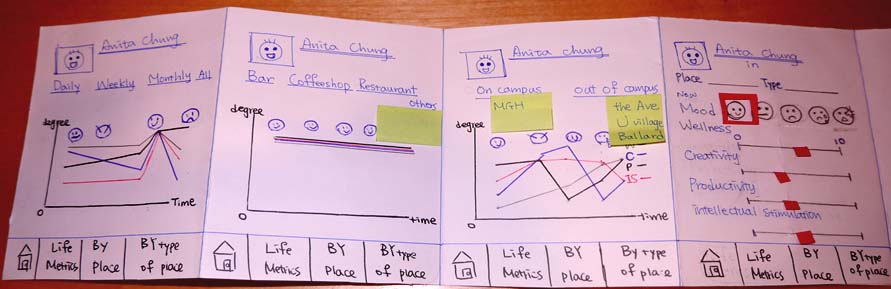 Anita Chung
Daily Weekly Monthly All
degree
0
Time
Life Metrics
BY Place
BY type of place
Anita Chung
Bar Coffeeshop Restaurant
others
degree
0
time
Life Metrics
BY Place
BY type of place
Anita Chung
On campus
out of campus
MGH
the Ave
U village
Ballard
degree
C
P
IS
0
time
Life Metrics
BY Place
BY type of place
Anita Chung
in
Place
Type
Now
Mood
Wellness
0
10
Creativity
Productivity
intellectual stimulation
Life Metrics
BY Place
BY type of place